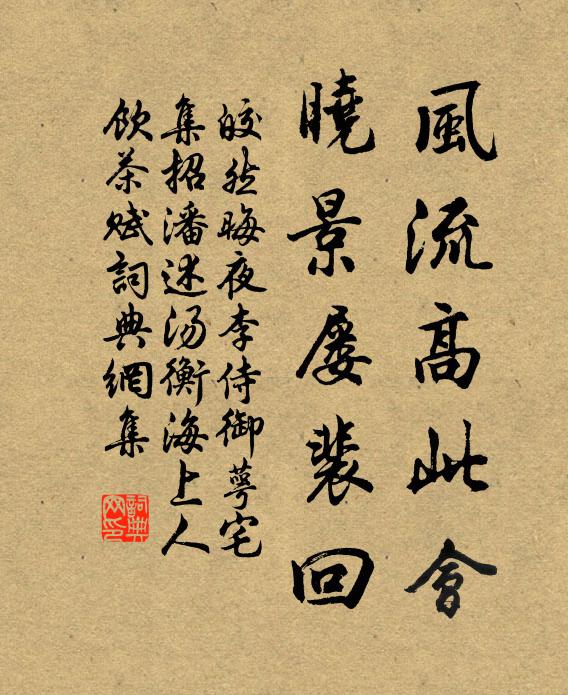 風流高此會
曉景屡裴回
皎然晦夜李侍御萼宅
集招潘述汤衡海上人
飲茶赋詞典網集
詞典网印